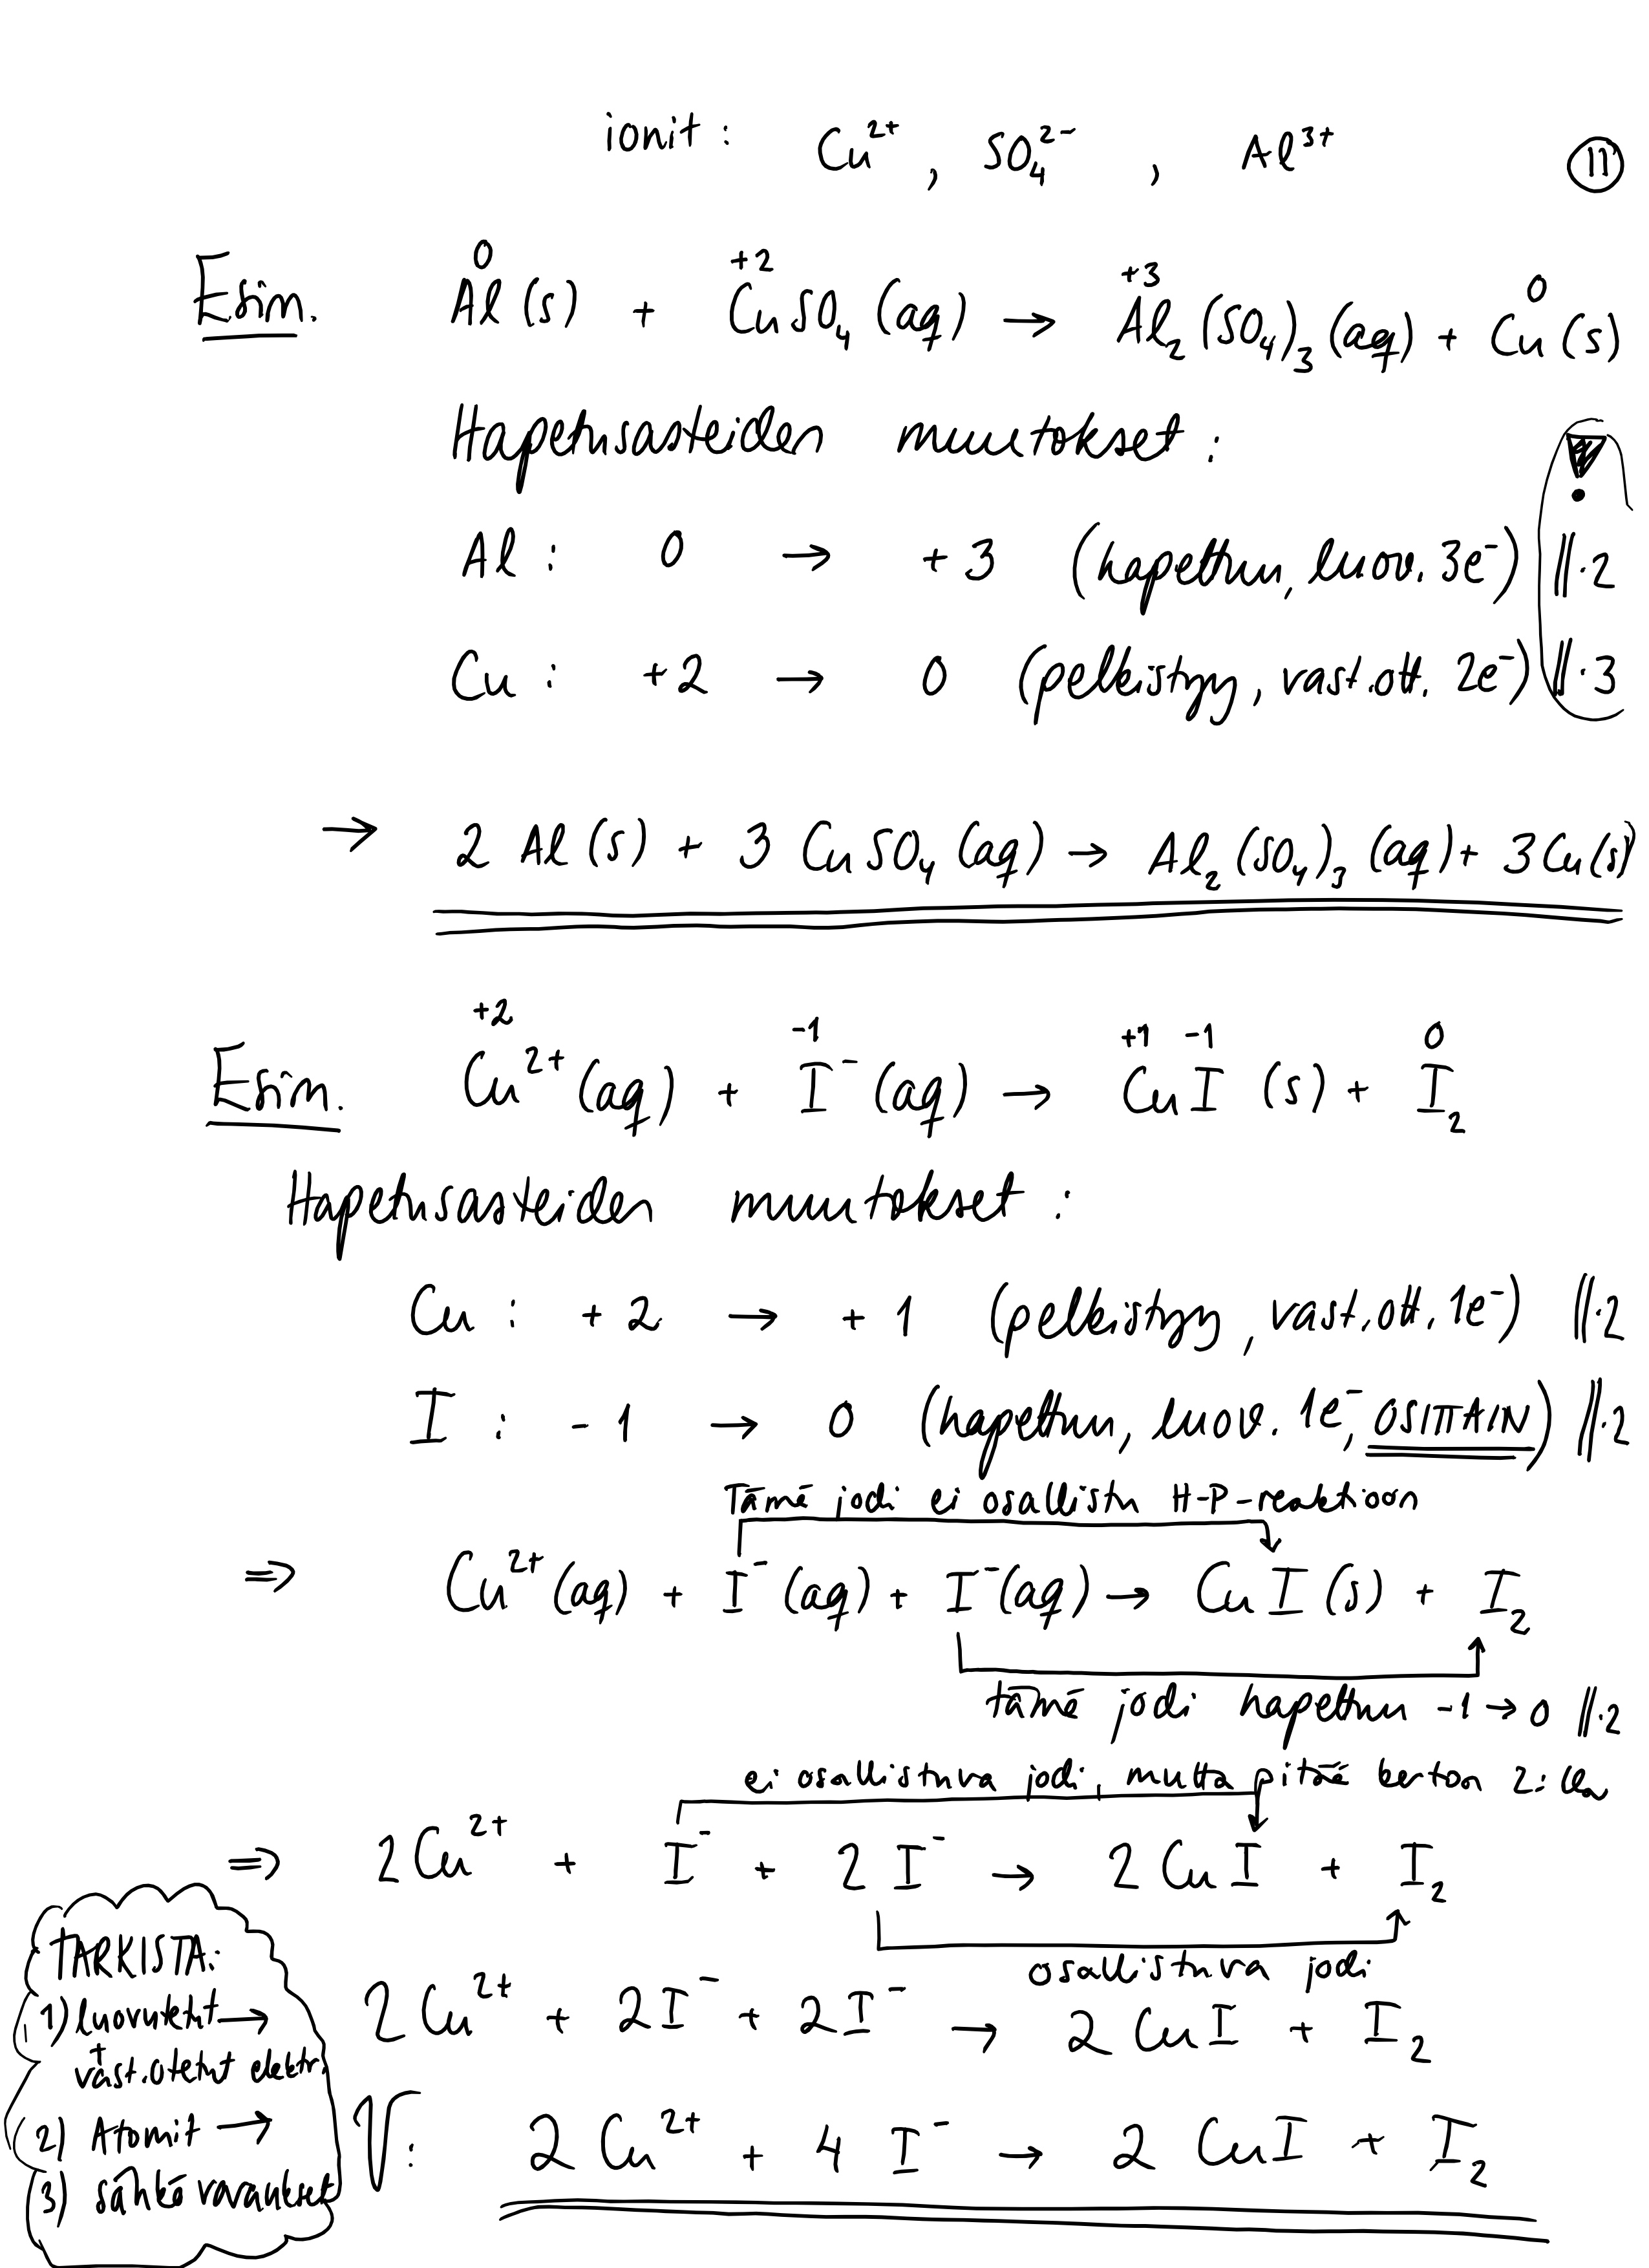 ionit : Cu²⁺ , SO₄²⁻ , Al³⁺ ⑪
0 +2 +3 0
Esim. Al (s) + CuSO₄ (aq) → Al₂(SO₄)₃ (aq) + Cu (s)
Hapetusasteiden muutokset : !
Al : 0 → +3 (hapettuu, luov. 3e⁻) ||·2
Cu : +2 → 0 (pelkistyy, vast.ott. 2e⁻) ||·3
→ 2 Al (s) + 3 CuSO₄ (aq) → Al₂(SO₄)₃ (aq) + 3 Cu (s)
+2 -1 +1 -1 0
Esim. Cu²⁺ (aq) + I⁻ (aq) → CuI (s) + I₂
Hapetusasteiden muutokset :
Cu : +2 → +1 (pelkistyy, vast.ott. 1e⁻) ||·2
I : -1 → 0 (hapettuu, luov. 1e⁻, OSITTAIN) ||·2
Tämä jodi ei osallistu H-P-reaktioon
⇒ Cu²⁺ (aq) + I⁻ (aq) + I⁻ (aq) → CuI (s) + I₂
tämä jodi hapettuu -1 → 0 ||·2
ei osallistuva jodi, mutta pitää kertoa 2:lla
⇒ 2Cu²⁺ + I⁻ + 2 I⁻ → 2 CuI + I₂
osallistuva jodi
2 Cu²⁺ + 2I⁻ + 2I⁻ → 2 CuI + I₂
V: 2 Cu²⁺ + 4 I⁻ → 2 CuI + I₂
TARKISTA:
1) luovutetut →
+
vast.otetut elektr.
2) Atomit →
3) sähkövaraukset